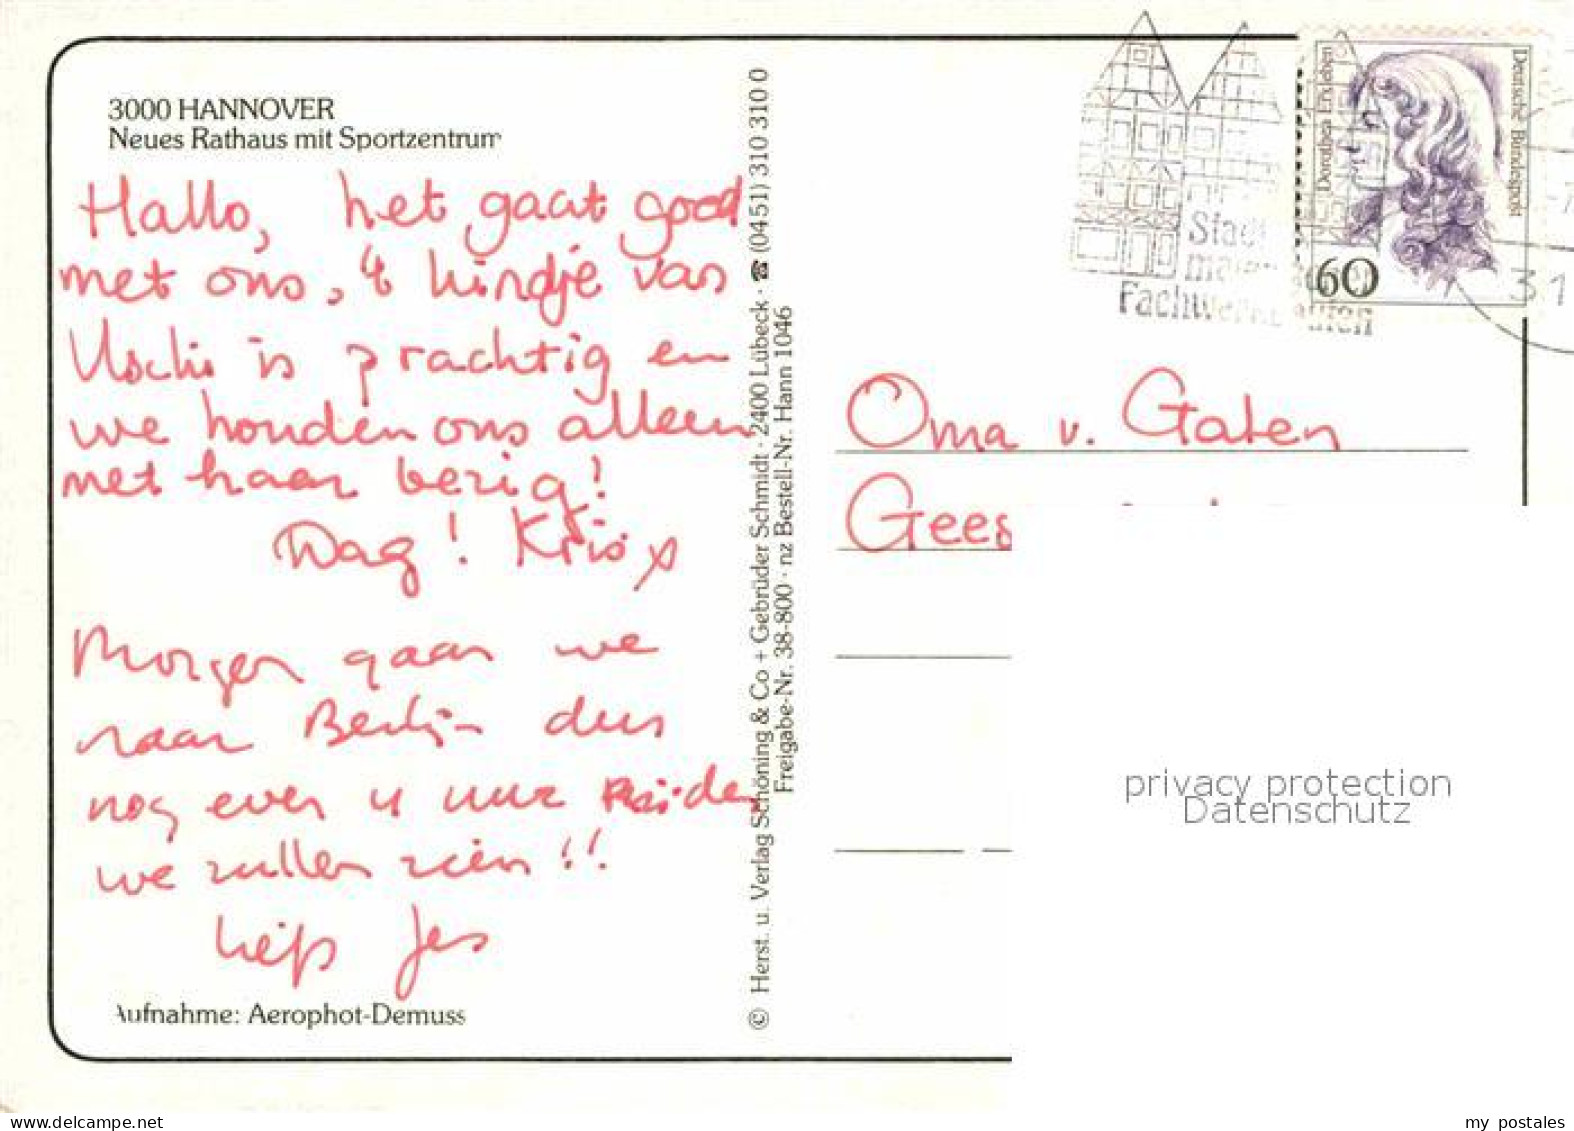 3000 HANNOVER
Neues Rathaus mit Sportzentrum
Hallo, het gaat goed
met ons, 't kindje van
Uschi is prachtig en
we houden ons alleen
met haar bezig!
Dag! Kris x
Morgen gaan we
naar Berlijn dus
nog even
we zullen zien!!
liefs Jes
Aufnahme: Aerophot-Demuss
© Herst. u. Verlag Schöning & Co + Gebrüder Schmidt · 2400 Lübeck · ☎ (0451) 310 310 0
Freigabe-Nr. 38-800 · nz Bestell-Nr. Hann 1046
Stadt
Fachwerkbauten
Dorothea Erxleben
Deutsche Bundespost
60
31
Oma v. Gaten
Gees
privacy protection
Datenschutz
www.delcampe.net
my_postales